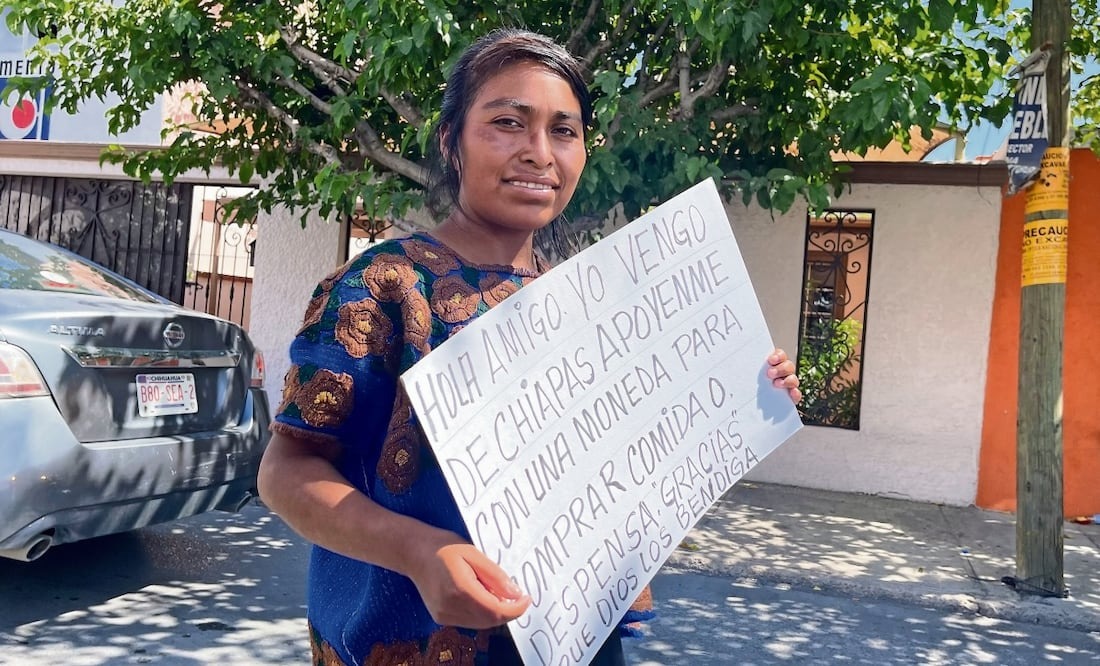 HOLA AMIGO. YO VENGO
DE CHIAPAS APOYENME
CON UNA MONEDA PARA
COMPRAR COMIDA O.
DESPENSA. "GRACIAS"
QUE DIOS LOS BENDIGA
ALTIMA
CHIHUAHUA
B80-SEA-2
PRECAUC
NO EXCA